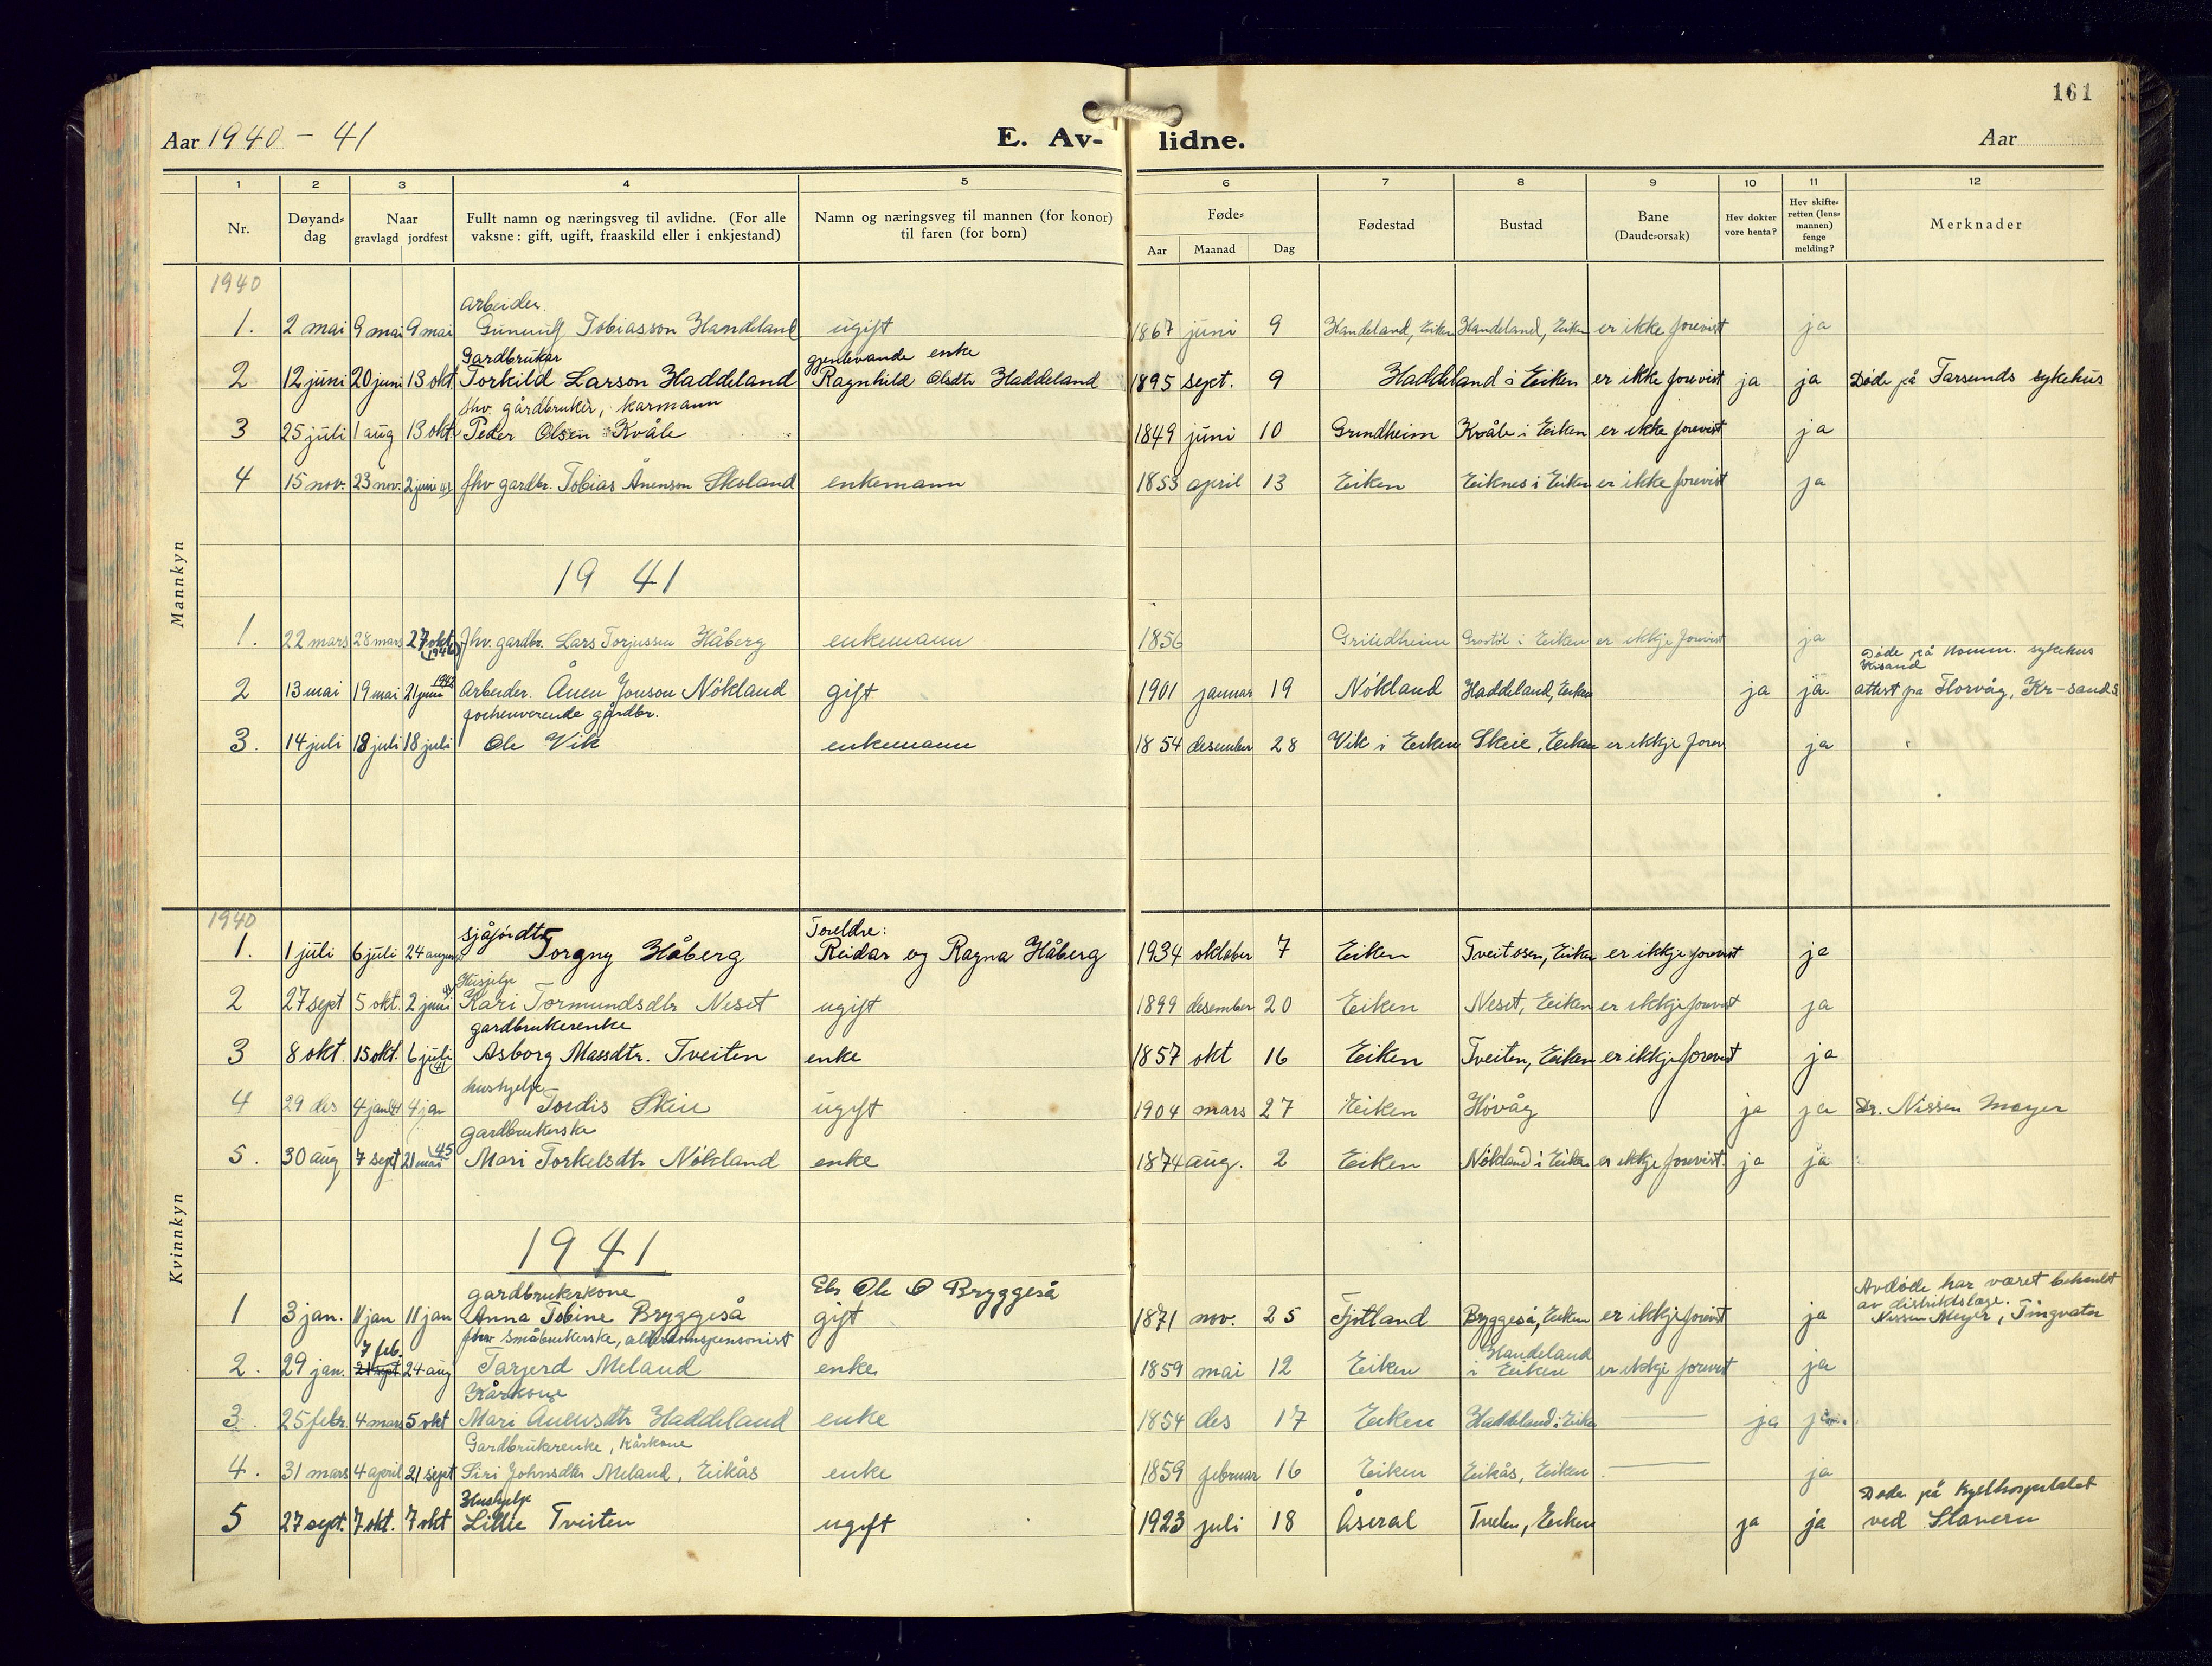 161
Aar 1940 - 41 E. Av- lidne. Aar
1 2 3 4 5 6 7 8 9 10 11 12
Nr. Døyand-dag Naar gravlagd jordfest Fullt namn og næringsveg til avlidne. (For alle vaksne: gift, ugift, fraaskild eller i enkjestand) Namn og næringsveg til mannen (for konor) til faren (for born) Føde- Aar Maanad Dag Fødestad Bustad Bane (Daude-orsak) Hev dokter vore henta? Hev skifte-retten (lens-mannen) fenge melding? Merknader
Mannkyn
1940
arbeider.
1. 2 mai 9 mai 9 mai Tobiasson Handeland ugift 1867 juni 9 Handeland, Eiken Handeland, Eiken er ikke forevist ja
Gardbrukar gjenlevande enke
2 12 juni 20 juni 13 okt Torkild Larson Haddeland Ragnhild Olsdtr Haddeland 1895 sept. 9 Haddeland i Eiken er ikke forevist ja ja Døde på Farsunds sykehus
fhv. gårdbruker, karmann
3 25 juli 1 aug 13 okt Peder Olsen Kvåle 1849 juni 10 Grindheim Kvåle i Eiken er ikke forevist ja
4 15 nov. 23 nov. 2 juni 41 fhv gardbr. Tobias Ånenson Skoland enkemann 1853 april 13 Eiken Eiknes i Eiken er ikke forevist ja
19 41
1. 22 mars 28 mars 27 okt (1946) fhv. gardbr. Lars Torjussen Håberg enkemann 1856 Grindheim i Eiken er ikkje forevist ja
Døde på Komm. sykehus Krsand
2 13 mai 19 mai 21 juni 1942 Arbeider. Ånen Jonson Nökland gift 1901 januar 19 Nökland Haddeland, Eiken ja ja. attest fra Florvåg, Kr-sand S
forhenverende gårdbr.
3. 14 juli 18 juli 18 juli Ole Vik enkemann 1854 desember 28 Vik i Eiken Skeie, Eiken er ikkje forev ja
Kvinnkyn
1940
sjåførdtr Foreldre:
1. 1 juli 6 juli 24 august Torgny Håberg Reidar og Ragna Håberg 1934 oktober 7 Eiken Tveitosen, Eiken er ikkje forevist ja
Husjelp
2 27 sept 5 okt. 2 juni 41 Kari Tormundsdtr Neset ugift 1899 desember 20 Eiken Neset, Eiken er ikkje forevist ja
gardbrukerenke
3 8 okt. 15 okt. 6 juli (41) Asborg Massdtr. Tveiten enke 1857 okt 16 Eiken Tveiten, Eiken er ikkje forevist ja
hushjelp
4 29 des 4 jan 41 4 jan Tordis Skeie ugift 1904 mars 27 Eiken Hövåg ja ja Dr. Nissen Meyer
gardbrukerske
5. 30 aug 7 sept 21 mai 45 Mari Torkelsdtr Nökland enke 1874 aug. 2 Eiken Nökland i Eiken er ikkje forevist. ja ja
1941
gardbrukerkone Ole O Bryggeså Avdöde har været behandlet av distriktslæge.
1 3 jan. 11 jan 11 jan Anna Tobine Bryggeså gift 1871 nov. 25 Fjotland Bryggeså, Eiken er ikkje forevist ja Nissen Meyer, Tingvatn
fhv småbrukerske, alderdomspensonist
7 feb. Handeland
2. 29 jan. 24 aug Tarjerd Meland enke 1859 mai 12 Eiken i Eiken er ikkje forevist ja
Kårkone
3. 25 febr. 4 mars 5 okt Mari Ånensdtr Haddeland enke 1854 des 17 Eiken Haddeland i Eiken — ja ja
Gardbrukerenke, kårkone
4. 31 mars 4 april 21 sept Siri Johnsdtr Meland, Eikås enke 1859 februar 16 Eiken Eikås, Eiken — ja
Hushjelp Döde på Kysthospitalet
5 27 sept. 7 okt. 7 okt Lillie Tveiten ugift 1923 juli 18 Åseral Tveiten, Eiken ja ja ved Stavern